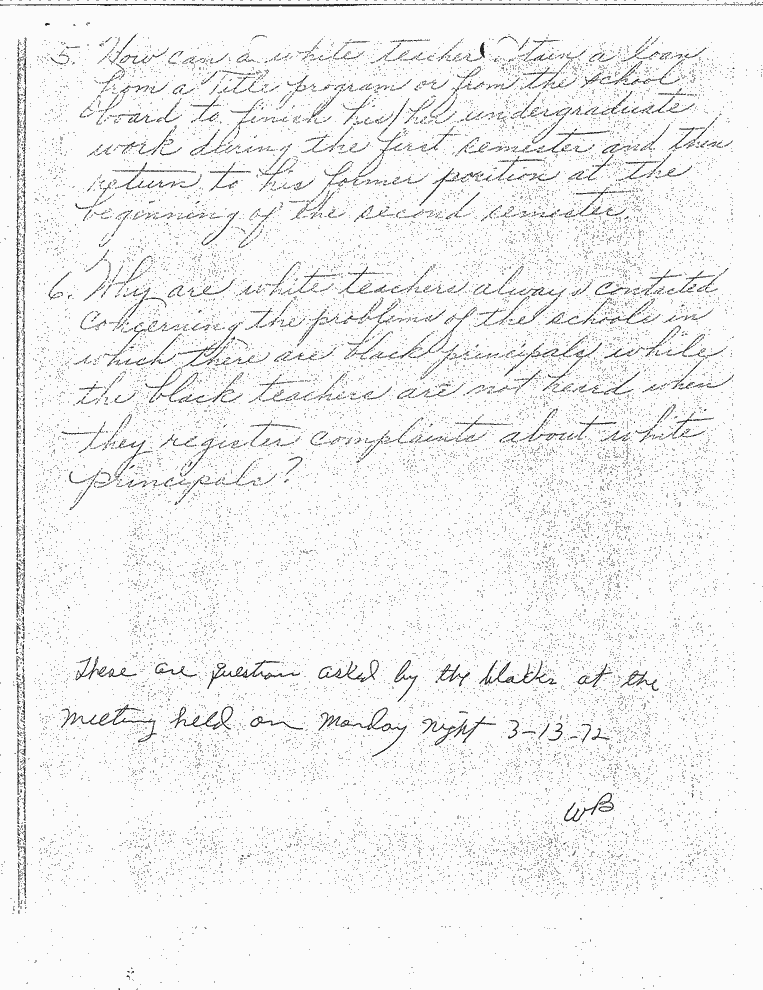 5. How can a white teacher obtain a loan
from a Title program or from the school
board to finish his/her undergraduate
work during the first semester and then
return to his former position at the
beginning of the second semester.
6. Why are white teachers always contacted
concerning the problems of the schools in
which there are black principals while
the black teachers are not heard when
they register complaints about white
principals?
These are question asked by the blacks at the
meeting held on Monday night 3-13-72
WB